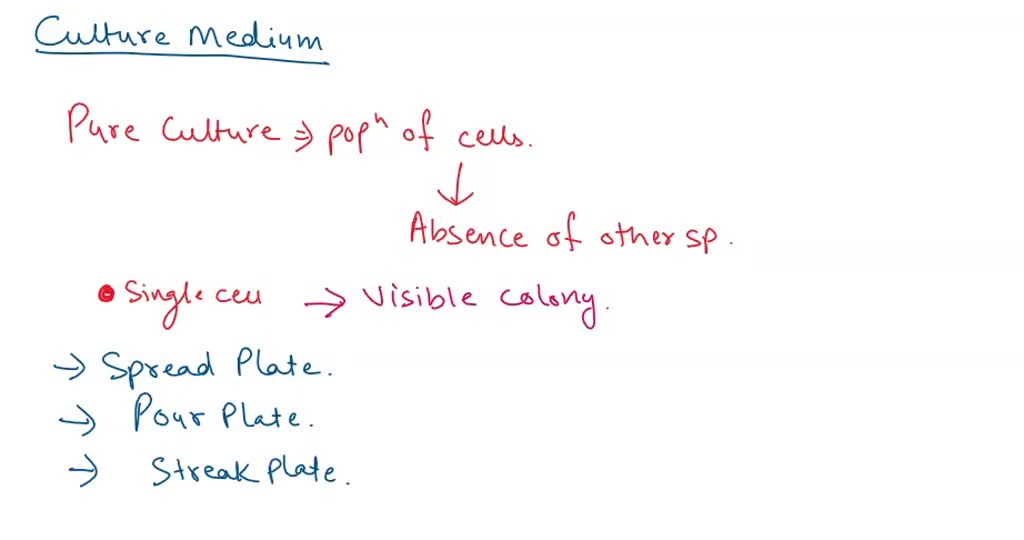 Culture Medium
Pure Culture ⇒ popⁿ of cells.
↓
Absence of other sp.
• Single cell → Visible colony.
→ Spread Plate.
→ Pour Plate.
→ Streak Plate.